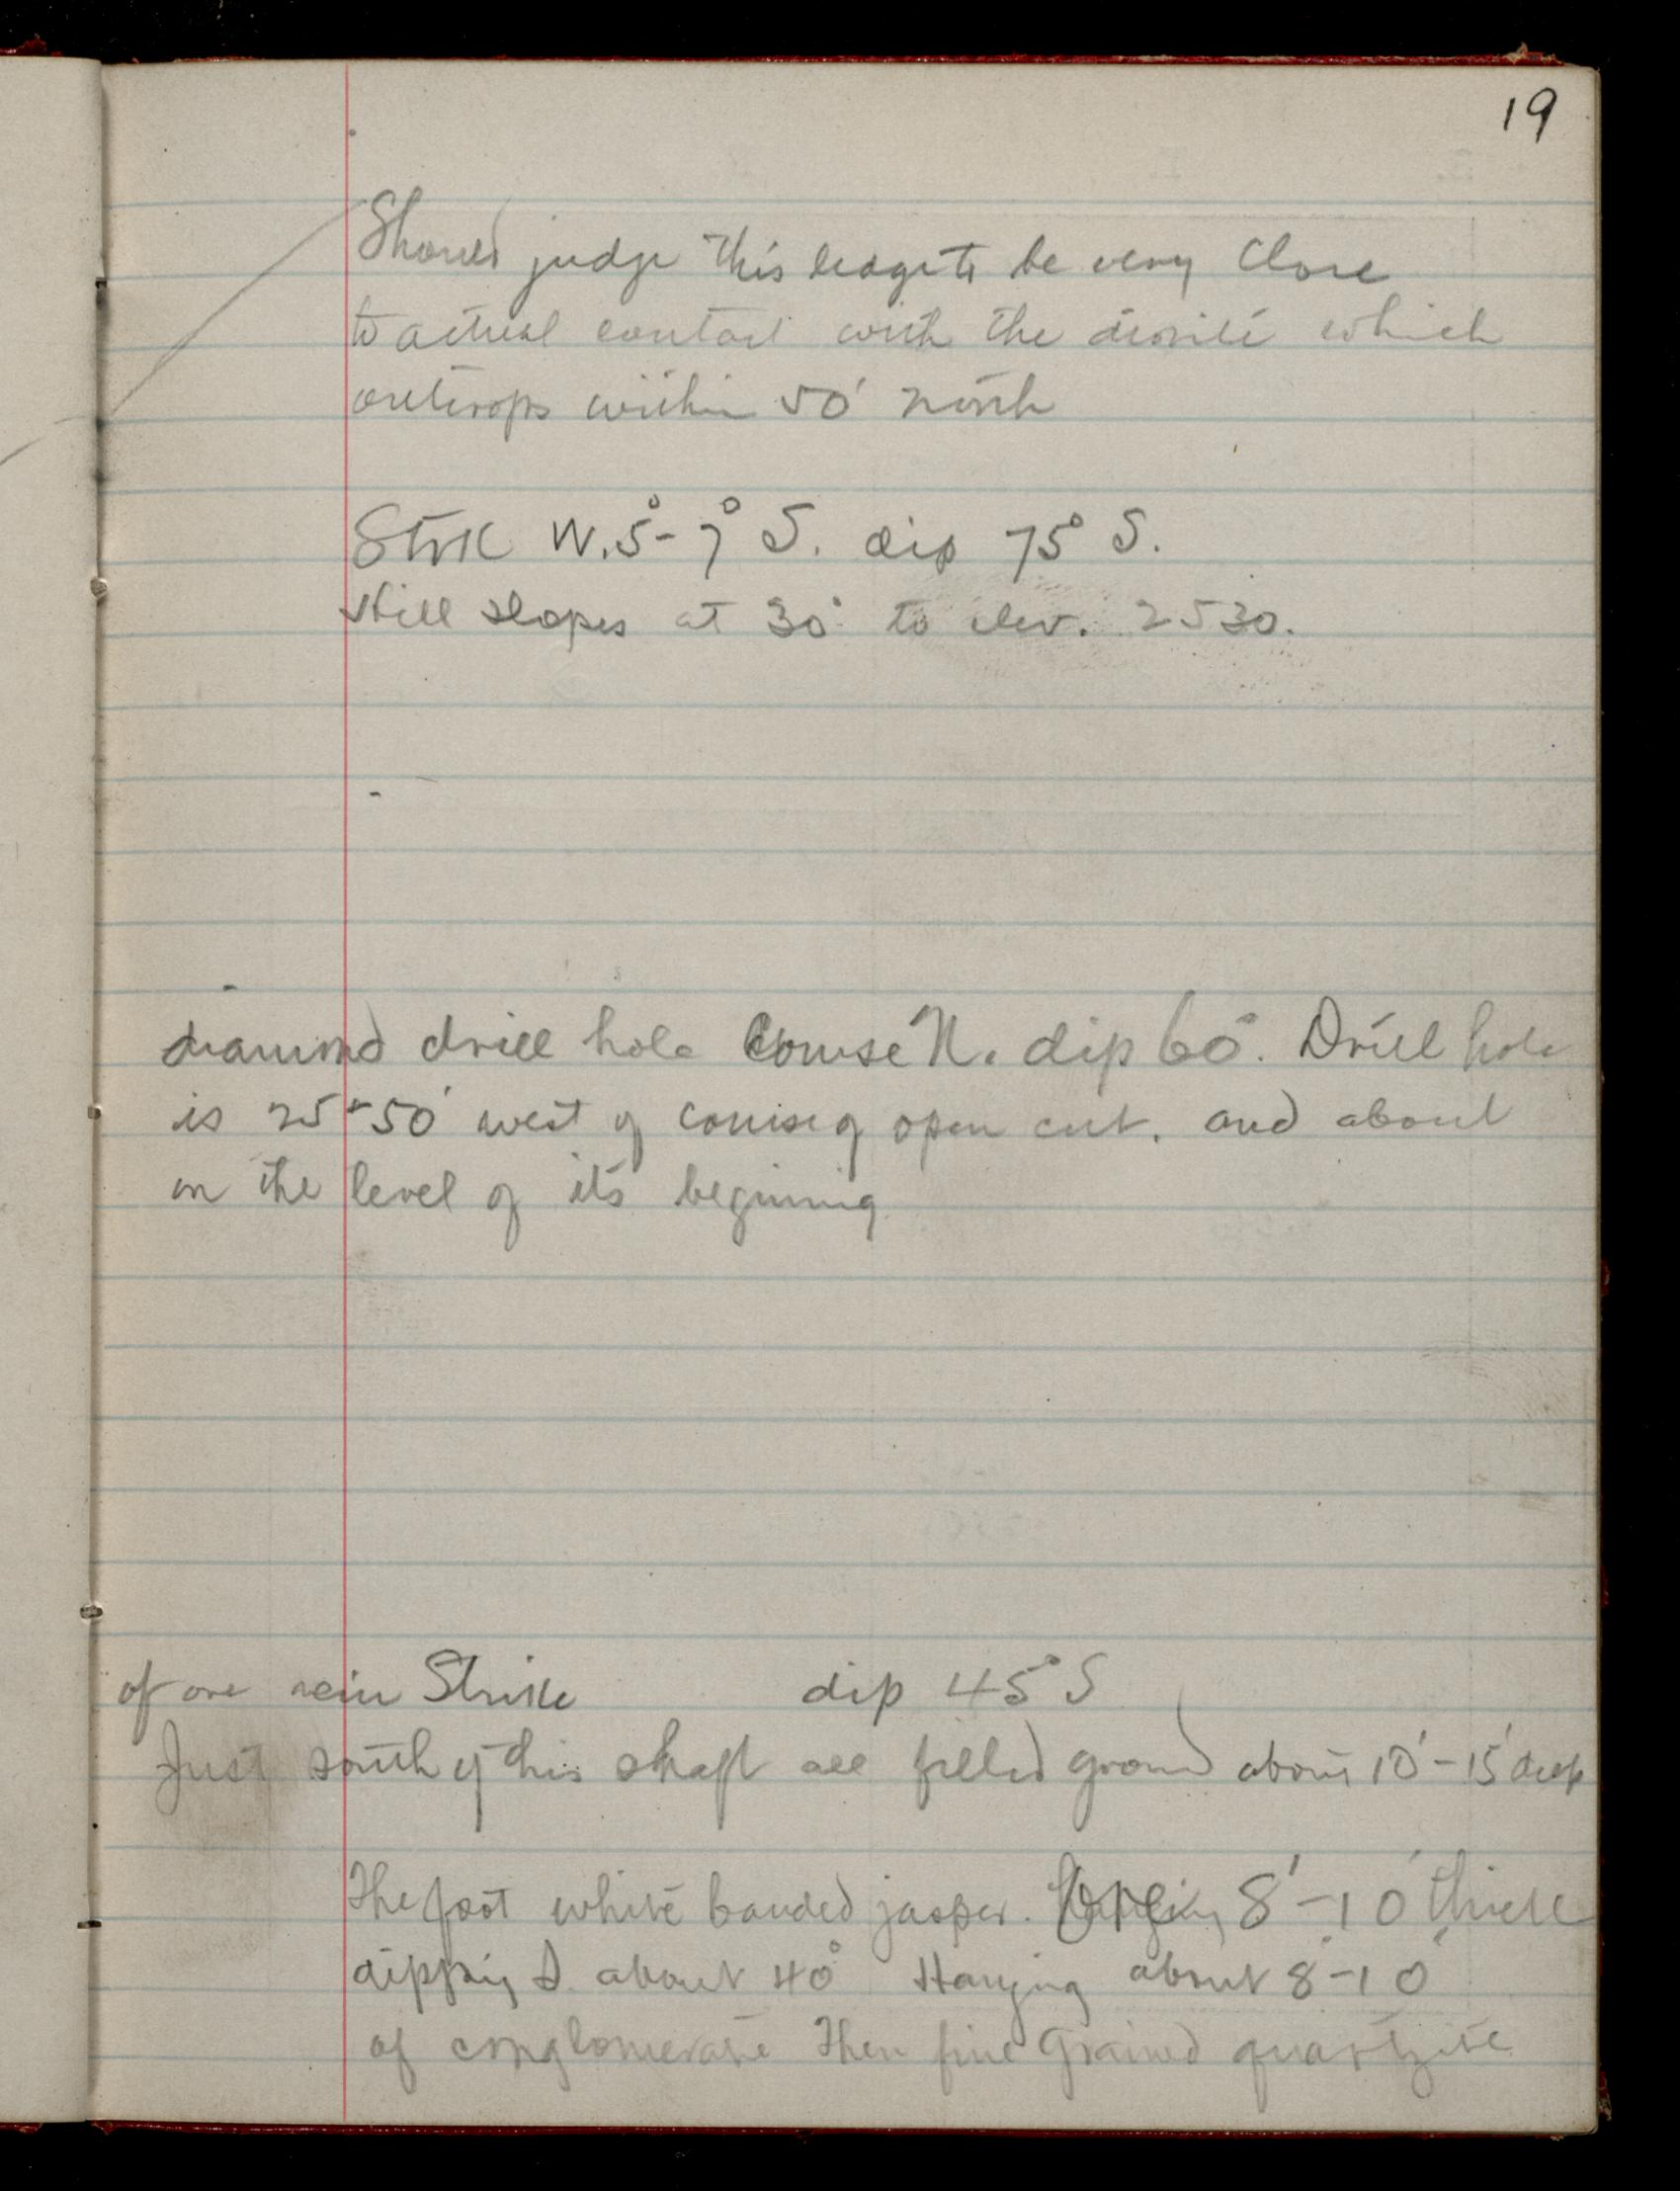 19
Should judge this ledge to be very close
to actual contact with the diorite which
outcrops within 50' north
Strk W. 5°-7° S. dip 75° S.
Hill slopes at 30° to elev. 2530.
diamond drill hole Course N. dip 60°. Drill hole
is 25-50' west of course of open cut. and about
on the level of its begining
of ore vein Strike dip 45° S
Just south of this shaft all filled ground about 10'-15' deep
The foot white banded jasper. 8'-10' thick
dipping S. about 40° Hanging about 8'-10'
of conglomerate then fine grained quartzite